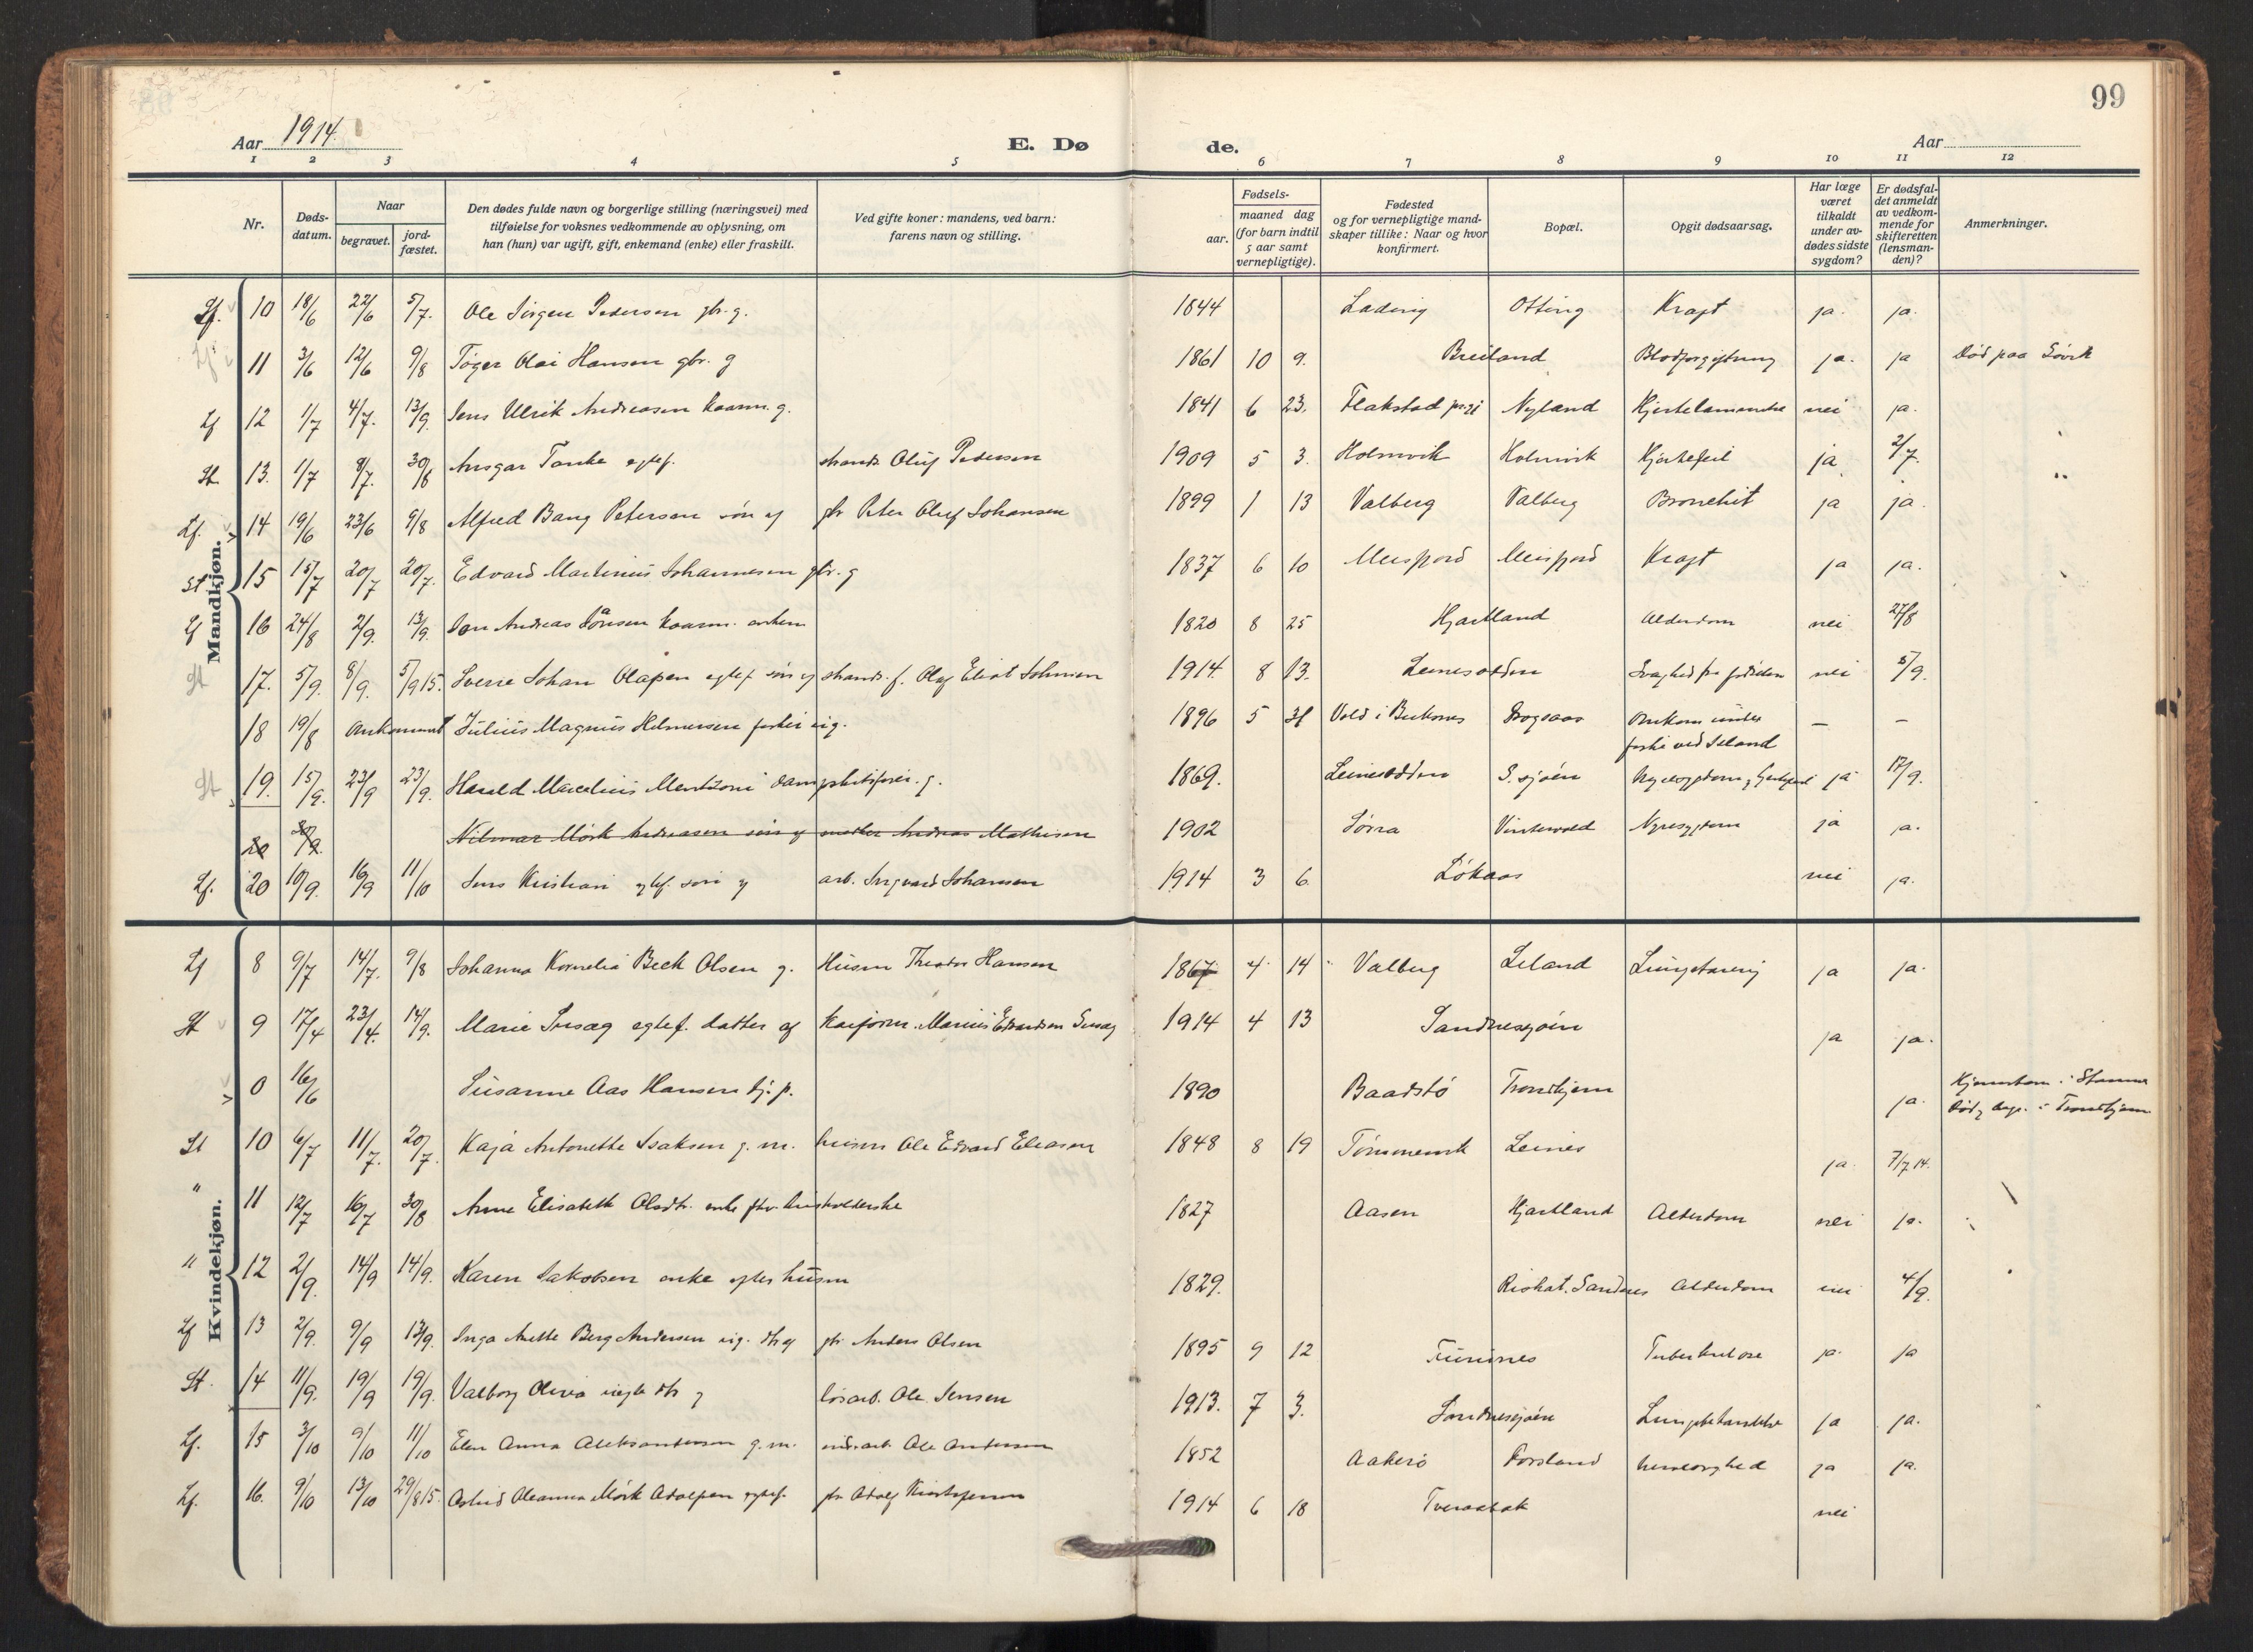 99
Aar 1914.
E. Dø de.
Aar
1 2 3 4 5 6 7 8 9 10 11 12
Nr.
Døds-datum.
Naar
begravet.
jord-fæstet.
Den dødes fulde navn og borgerlige stilling (næringsvei) med
tilføielse for voksnes vedkommende av oplysning, om
han (hun) var ugift, gift, enkemand (enke) eller fraskilt.
Ved gifte koner: mandens, ved barn:
farens navn og stilling.
Fødsels-
aar.
maaned dag
(for barn indtil
5 aar samt
vernepligtige).
Fødested
og for vernepligtige mand-
skaper tillike: Naar og hvor
konfirmert.
Bopæl.
Opgit dødsaarsag.
Har læge
været
tilkaldt
under av-
dødes sidste
sygdom?
Er dødsfal-
det anmeldt
av vedkom-
mende for
skifteretten
(lensman-
den)?
Anmerkninger.
Mandkjøn.
Lf. 10 18/6 22/6 5/7. Ole Jørgen Pedersen gbr. g. 1844 Lading Otting Kraft ja. ja.
Lf 11 3/6 12/6 9/8 Tøger Olai Hansen gbr. g 1861 10 9. Breiland Blodforgiftning ja. ja Død paa Søvik
Lf 12 1/7 4/7. 13/9. Jens Ulrik Andreasen kaarm. g. 1841 6 23. Flakstad Nyland Hjertelammelse nei ja.
St. 13. 1/7 8/7. 30/8 Ansgar Tanke egtef. strands. Oluf Pedersen 1909 5 3. Holmvik Holmvik Hjertefeil ja 2/7.
Lf. 14 19/6 23/6 9/8 Alfred Bang Petersen søn af gbr Peter Oluf Johansen 1899 1 13 Valberg Valberg Bronchit ja ja.
St 15 15/7 20/7 20/7. Edvard Martinus Johannesen gbr. g 1837 6 10 Meisfjord Meisfjord Kraft ja ja.
Lf 16 24/8 2/9. 13/9. Jon Andreas Jönsen kaarm. enkem 1820 8 25 Hjartland Alderdom nei 27/8
St 17. 5/9. 8/9. 5/9 15. Sverre Johan Olafsen egtef søn af strands. f. Olaf Eliot Johnsen 1914. 8 13. Leinesodden Svaghed fra fødselen nei 5/9.
18 19/8 Omkommet Julius Magnus Hilmersen fisker ug. 1896 5 31 Vold i Beiarnes Drogsaas Omkom under – –
fiske ved Seland
St 19. 15/9. 23/9 23/9. Harald Marcelius Mentzoni dampskibsfører. g. 1869. Leinesodden S. sjøen Nyresygdom og hjertefeil ja 17/9.
20 30/9. Hilmar Mörk Andreasen søn af Andreas Mathisen 1902 Sørra Vintervold Nyresygdom ja ja.
Lf. 20 10/9. 16/9 11/10 Jens Kristian egtef. søn af arb. Ingvard Johansen 1914 3 6. Løkaas nei ja.
Kvindekjøn.
Lf 8 9/7 14/7. 9/8 Johanna Kornelia Beck Olsen g. Husm Theodor Hansen 1867 4 14 Valberg Leland Lungetæring ja ja.
St 9 17/4 23/4. 14/9. Marie Sursæg egtef. datter af Marius Edvardsen 1914 4 13 Sandnessjøen ja ja.
0 16/6 Susanne Aas Hansen tj. p. 1890 Baadstø Trondhjem ja. Hjemstavn i Stamnes
Død og begr. i Trondhjem
St 10 6/7 11/7. 20/7. Kaja Antonette Isaksen g. m. husm Ole Edvard Eliasen 1848 8 19 Leines ja. 7/7 14.
" 11 12/7 16/7 30/8 Anne Elisabeth Olsdtr. enke 1827 Aasen Hjartland Alderdom nei ja.
" 12 2/9. 14/9 14/9. Karen Jakobsen enke efter husm 1829. Riskat. Sandnes Alderdom nei 4/9.
Lf 13 2/9. 9/9 13/9. Inga Anette Berg Andersen ug. dtr af gbr Anders Olsen 1895 9 12 Finnnes Tuberkulose ja. ja
St. 14 11/9. 19/9 19/9. Valborg Olivia uegte dtr af løsarb. Ole Jensen 1913. 7 3. Sandnessjøen Lungebetændelse ja ja.
Lf. 15 3/10 9/10 11/10 Elen Anna Aleksandersen g. m. Ole Andersen 1852 Aakerø Forsland ja ja.
Lf. 16. 9/10 13/10 29/8 15. Astrid Oleanna Mörk Adolfsen egtef. gbr Adolf Kristoffersen 1914 6 18 Tveraabak nei